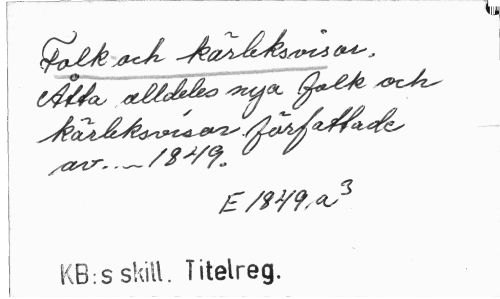 Folk och kärleksvisor.
Åtta alldeles nya folk och
kärleksvisor författade
av...— 1849.
E 1849.a³
KB:s skill. Titelreg.